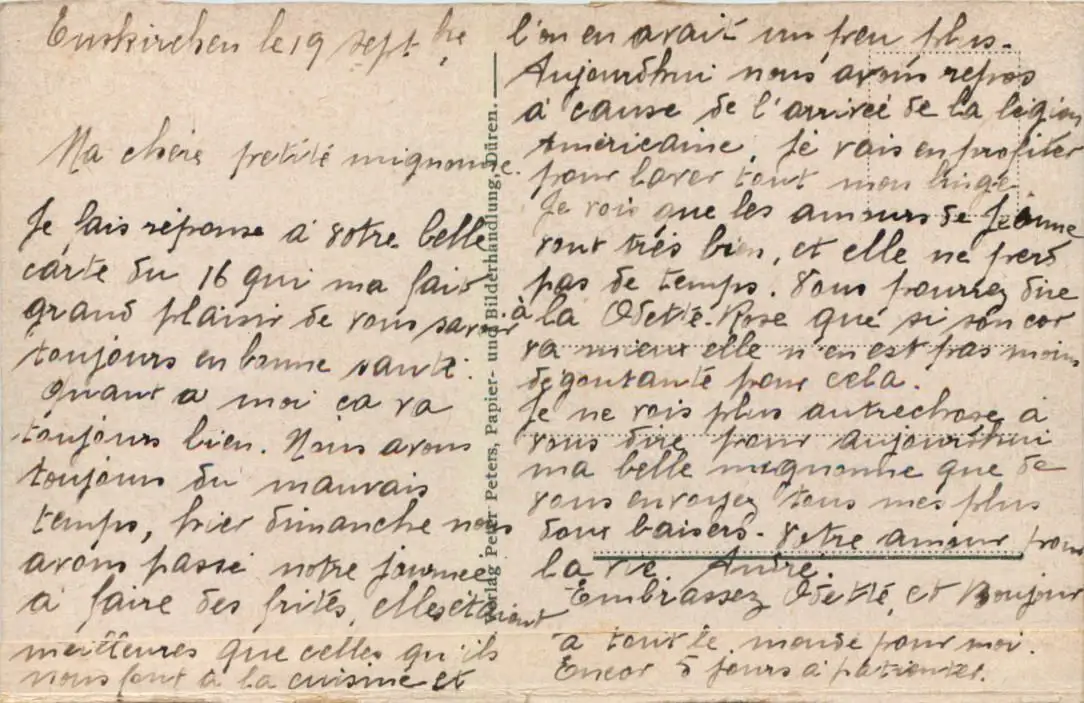 Euskirchen le 19 sept bre
Ma chère petite mignonne.
Je fais réponse à votre belle
carte du 16 qui ma fait
grand plaisir de vous savoir
toujours en bonne santé.
Quant a moi ça va
toujours bien. Nous avons
toujours du mauvais
temps, hier dimanche nous
avons passé notre journée
à faire des frites, elles étaient
meilleures que celles qu'ils
nous font à la cuisine et
Verlag Peter Peters, Papier- und Bilderhandlung, Düren.
l'on en avait un peu plus.
Aujourdhui nous avons repos
à cause de l'arrivée de la légion
Américaine, Je vais en profiter
pour laver tout mon linge
Je vois que les amours de Jeanne
vont très bien, et elle ne perd
pas de temps. Vous pourrez dire
à la Odette-Rose que si son cor
va mieux elle n'en est pas moins
dégoutante pour cela.
Je ne vois plus autrechose à
vous dire pour aujourdhui
ma belle mignonne que de
vous envoyez tous mes plus
doux baisers. Votre amour pour
la vie. André.
Embrassez Odette, et Bonjour
à tout le monde pour moi.
Encor 5 jours à patienter.